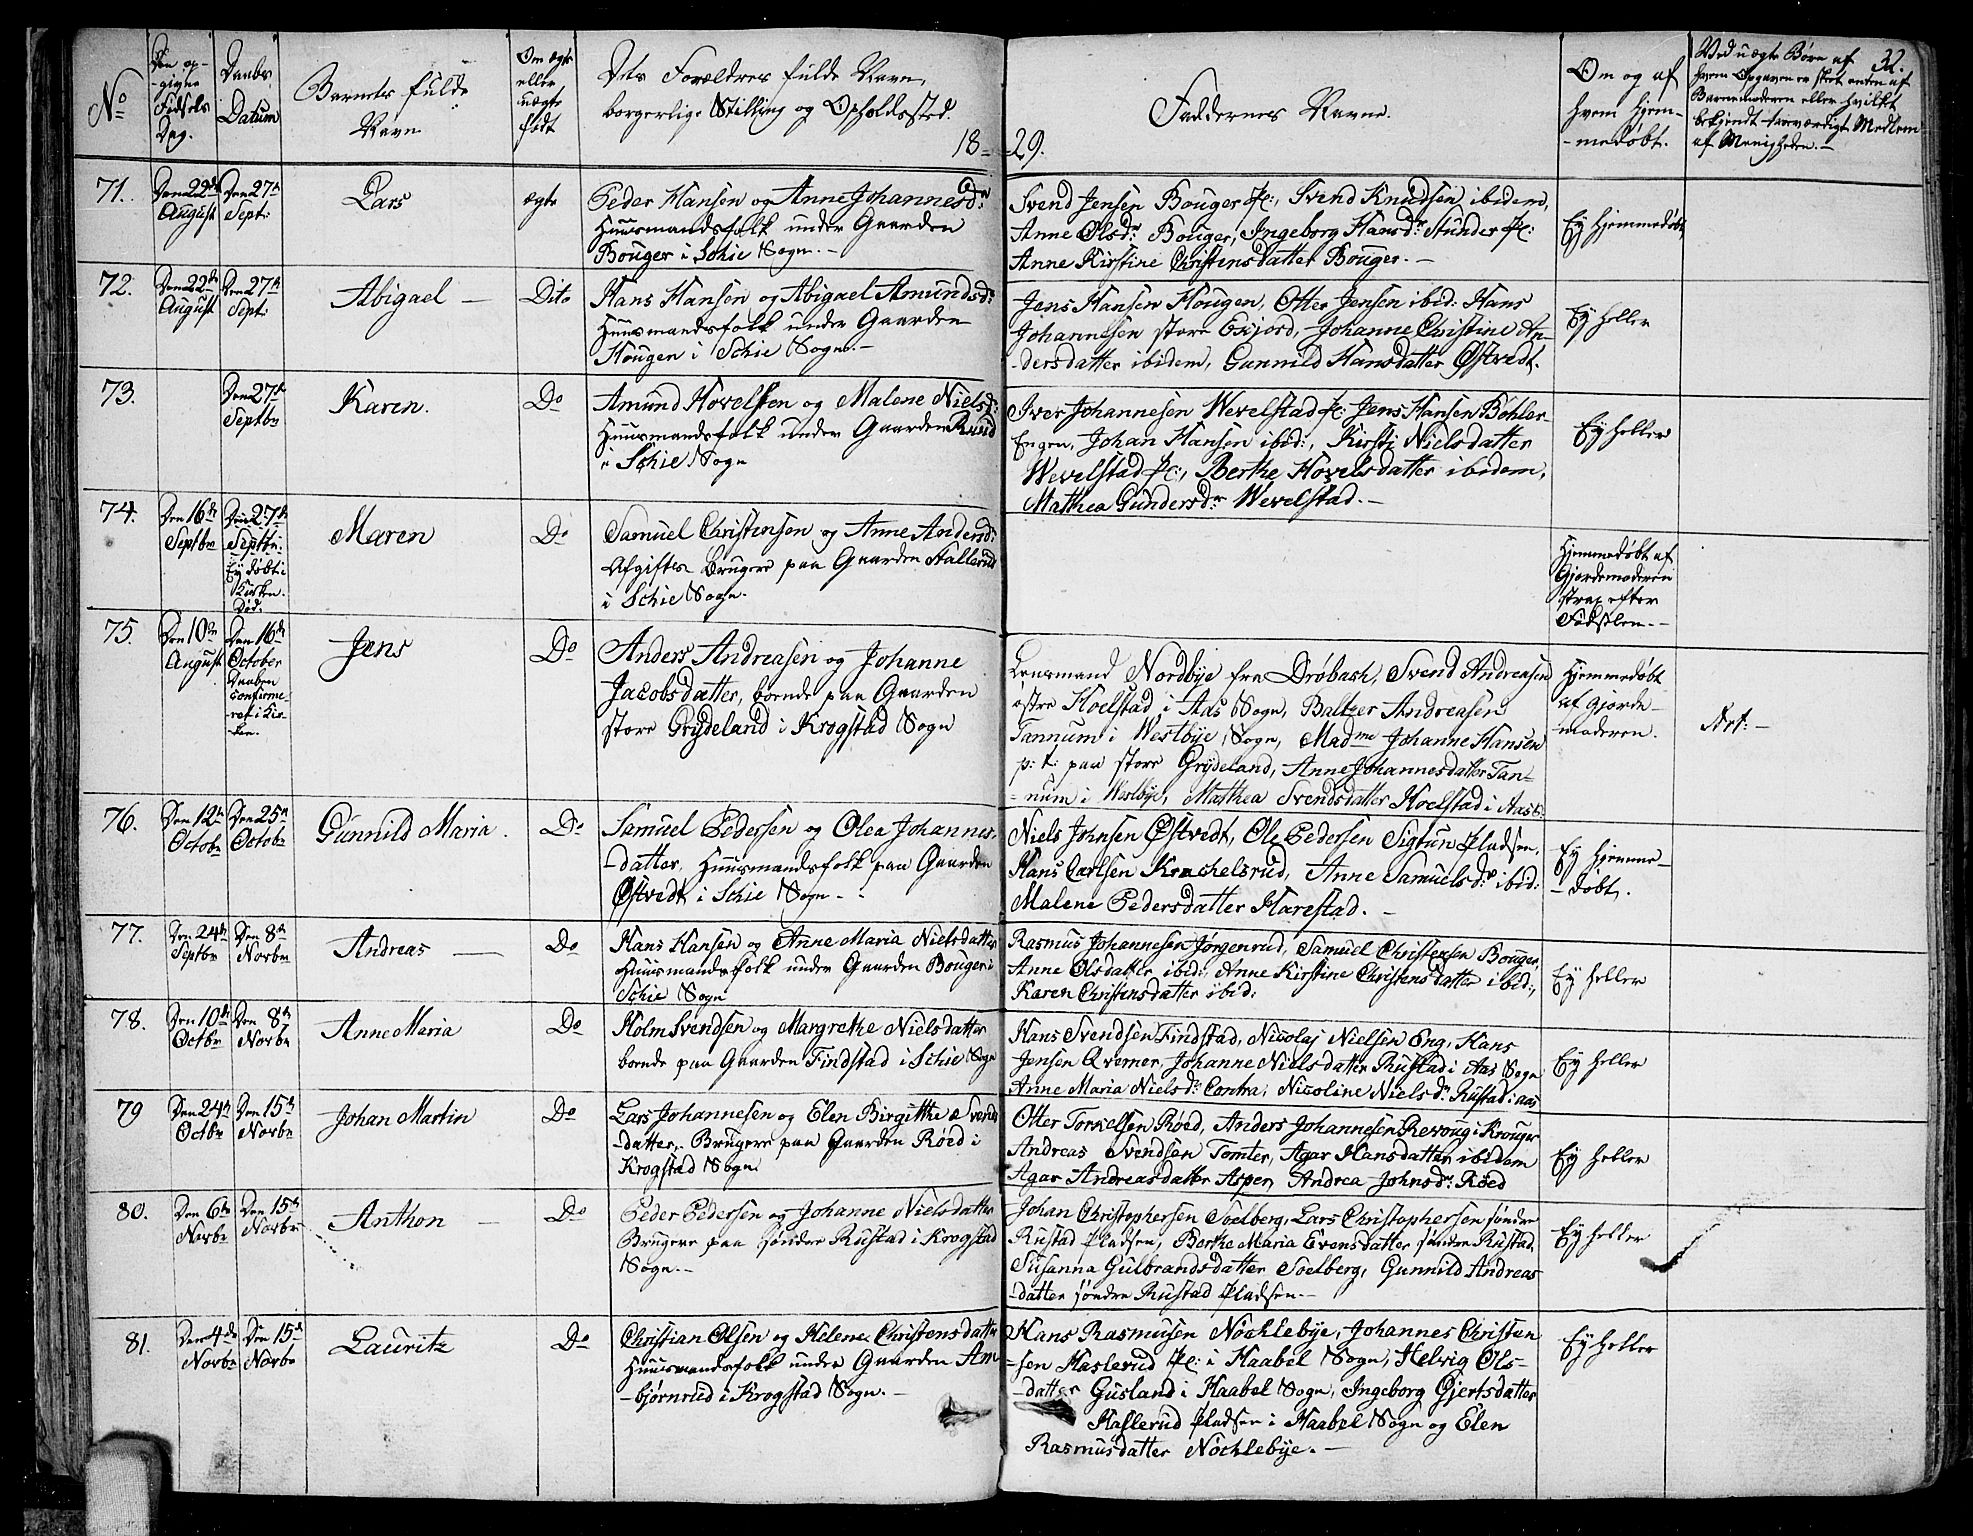 32.
No
Den op-
-givne
Fødsels
Dag.
Daabs
Datum
Barnets fulde
Navn
Om ægte
eller
uægte
født
Dets Forældres fulde Navn,
borgerlige Stilling og Opholdssted.
18-29.
Faddernes Navne.
Om og af
hvem hjem-
-medøbt.
Ved uægte Børn af
hvem Opgaven er skeet enten af
Barnemoderen eller hvilket
bekjendt troværdigt Medlem
af Menigheden.-
71.
Den 22de
August
Den 27de
Sept:
Lars
ægte
Peder Hansen og Anne Johannesdr
Huusmandsfolk under Gaarden
Bouger i Schie Sogn.-
Svend Jensen Bouger Pl:, Svend Knudsen ibidem,
Anne Olsdr Bouger, Ingeborg Hansdr Stunder Pl:
Anne Kirstine Christensdatter Bouger.-
Ey Hjemmedøbt
72.
Den 22de
August
Den 27de
Sept:
Abigael -
Dito
Hans Hansen og Abigael Amundsdr
Huusmandsfolk under Gaarden
Hougen i Schie Sogn.-
Jens Hansen Hougen, Otter Jensen ibid: Hans
Johannesen store Eskjord, Johanne Christine An-
-dersdatter ibidem, Gunnild Hansdatter Østvedt.
Ey heller
73.
Den 27de
Septbr
Karen.
Do
Amund Hovelsen og Malene Nielsdr
Huusmandsfolk under Gaarden Ruud
i Schie Sogn
Iver Johannesen Wevelstad Pl: Jens Hansen Bøhler-
Engen, Johan Hansen ibid:, Kirsti Nielsdatter
Wevelstad Pl:, Berthe Hovelsdatter ibidem,
Mathea Gundersdr Wevelstad.-
Ey heller
74.
Den 16de
Septbr
Den 27de
Septbr:
Ey døbt i
Kirken.
Død.
Maren
Do
Samuel Christensen og Anne Andersdr:
Afgifts Brugere paa Gaarden Hallerud
i Schie Sogn.
Hjemmedøbt af
Gjordemoderen
strax efter
Fødselen.-
75.
Den 10de
August
Den 16de
October
Daaben
confirme-
-ret i Kir-
-ken.
Jens
Do
Anders Andreasen og Johanne
Jacobsdatter, boende paa Gaarden
store Grydeland i Krogstad Sogn
Lensmand Nordbye fra Drøbach, Svend Andreasen
østre Hoelstad i Aas Sogn, Baltzer Andreasen
Tannum i Westbye Sogn, Madme Johanne Hansen
p: t: paa store Grydeland, Anne Johannesdatter Tan-
-num i Westbye, Mathea Svendsdatter Hoelstad i Aas S:
Hjemmedøbt
af Gjorde-
moderen.
Not:-
76.
Den 12te
Octobr
Den 25de
Octobr
Gunnild Maria.
Do
Samuel Pedersen og Olea Johannes-
-datter, Huusmandsfolk paa Gaarden
Østvedt i Schie Sogn.-
Niels Johnsen Østvedt, Ole Pedersen Sigtun Pladsen,
Hans Carlsen Krachelsrud, Anne Samuelsdr ibid:
Malene Pedersdatter Harestad.-
Ey hjemme-
-døbt.
77.
Den 24de
Septbr
Den 8de
Novbr
Andreas -
Do
Hans Hansen og Anne Maria Nielsdatter
Huusmandsfolk under Gaarden Bouger i
Schie Sogn
Rasmus Johannesen Jørgenrud, Samuel Christensen Bouger,
Anne Olsdatter ibid:, Anne Kirstine Christensdatter ibid:,
Karen Christensdatter ibid:
Ey heller
78.
Den 10de
Octbr
Den 8de
Novbr
Anne Maria
Do
Holm Svendsen og Margrethe Nielsdatter
boende paa Gaarden Findstad i Schie Sogn
Hans Svendsen Findstad, Nicolaj Nielsen Eng, Hans
Jensen Qverner, Johanne Nielsdatter Rustad i Aas Sogn
Anne Maria Nielsdr Contra, Nicoline Nielsdr Rustad i aas
Ey heller
79
Den 24de
Octbr
Den 15de
Novbr
Johan Martin
Do
Lars Johannesen og Elen Birgitthe Svends
-datter, Brugere paa Gaarden Røed i
Krogstad Sogn.
Otter Torkelsen Røed, Anders Johannesen Revoug i Krouger
Andreas Svendsen Tomter, Agar Hansdatter ibidem
Agar Andreasdatter Aspen, Andrea Johnsdr Røed
Ey heller
80.
Den 6te
Novbr
Den 15de
Novbr
Anthon -
Do
Peder Pedersen og Johanne Nielsdatter
Brugere paa søndre Rustad i Krogstad
Sogn.-
Johan Christophersen Soelberg, Lars Christophersen søndre
Rustad Pladsen, Berthe Maria Evensdatter søndre Rustad,
Susanna Gulbrandsdatter Soelberg, Gunnild Andreas
-datter søndre Rustad Pladsen.-
Ey heller
81.
Den 4de
Novbr
Den 15de
Novbr
Lauritz
Do
Christian Olsen og Helene Christensdatter
Huusmandsfolk under Gaarden Am-
-bjørnrud i Krogstad Sogn.-
Hans Rasmusen Nøchlebye, Johannes Christen
-sen Haslerud Pl: i Haabel Sogn, Helvig Ols-
-datter Gusland i Haabel Sogn, Ingeborg Gjertsdatter
Haslerud Pladsen i Haabel Sogn og Elen
Rasmusdatter Nøchlebye.-
Ey heller